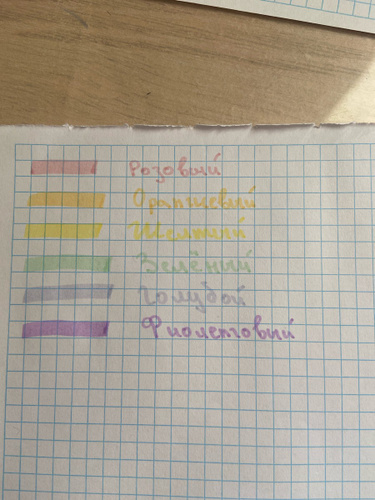 Розовый
Оранжевый
Желтый
Зелёный
Голубой
Фиолетовый